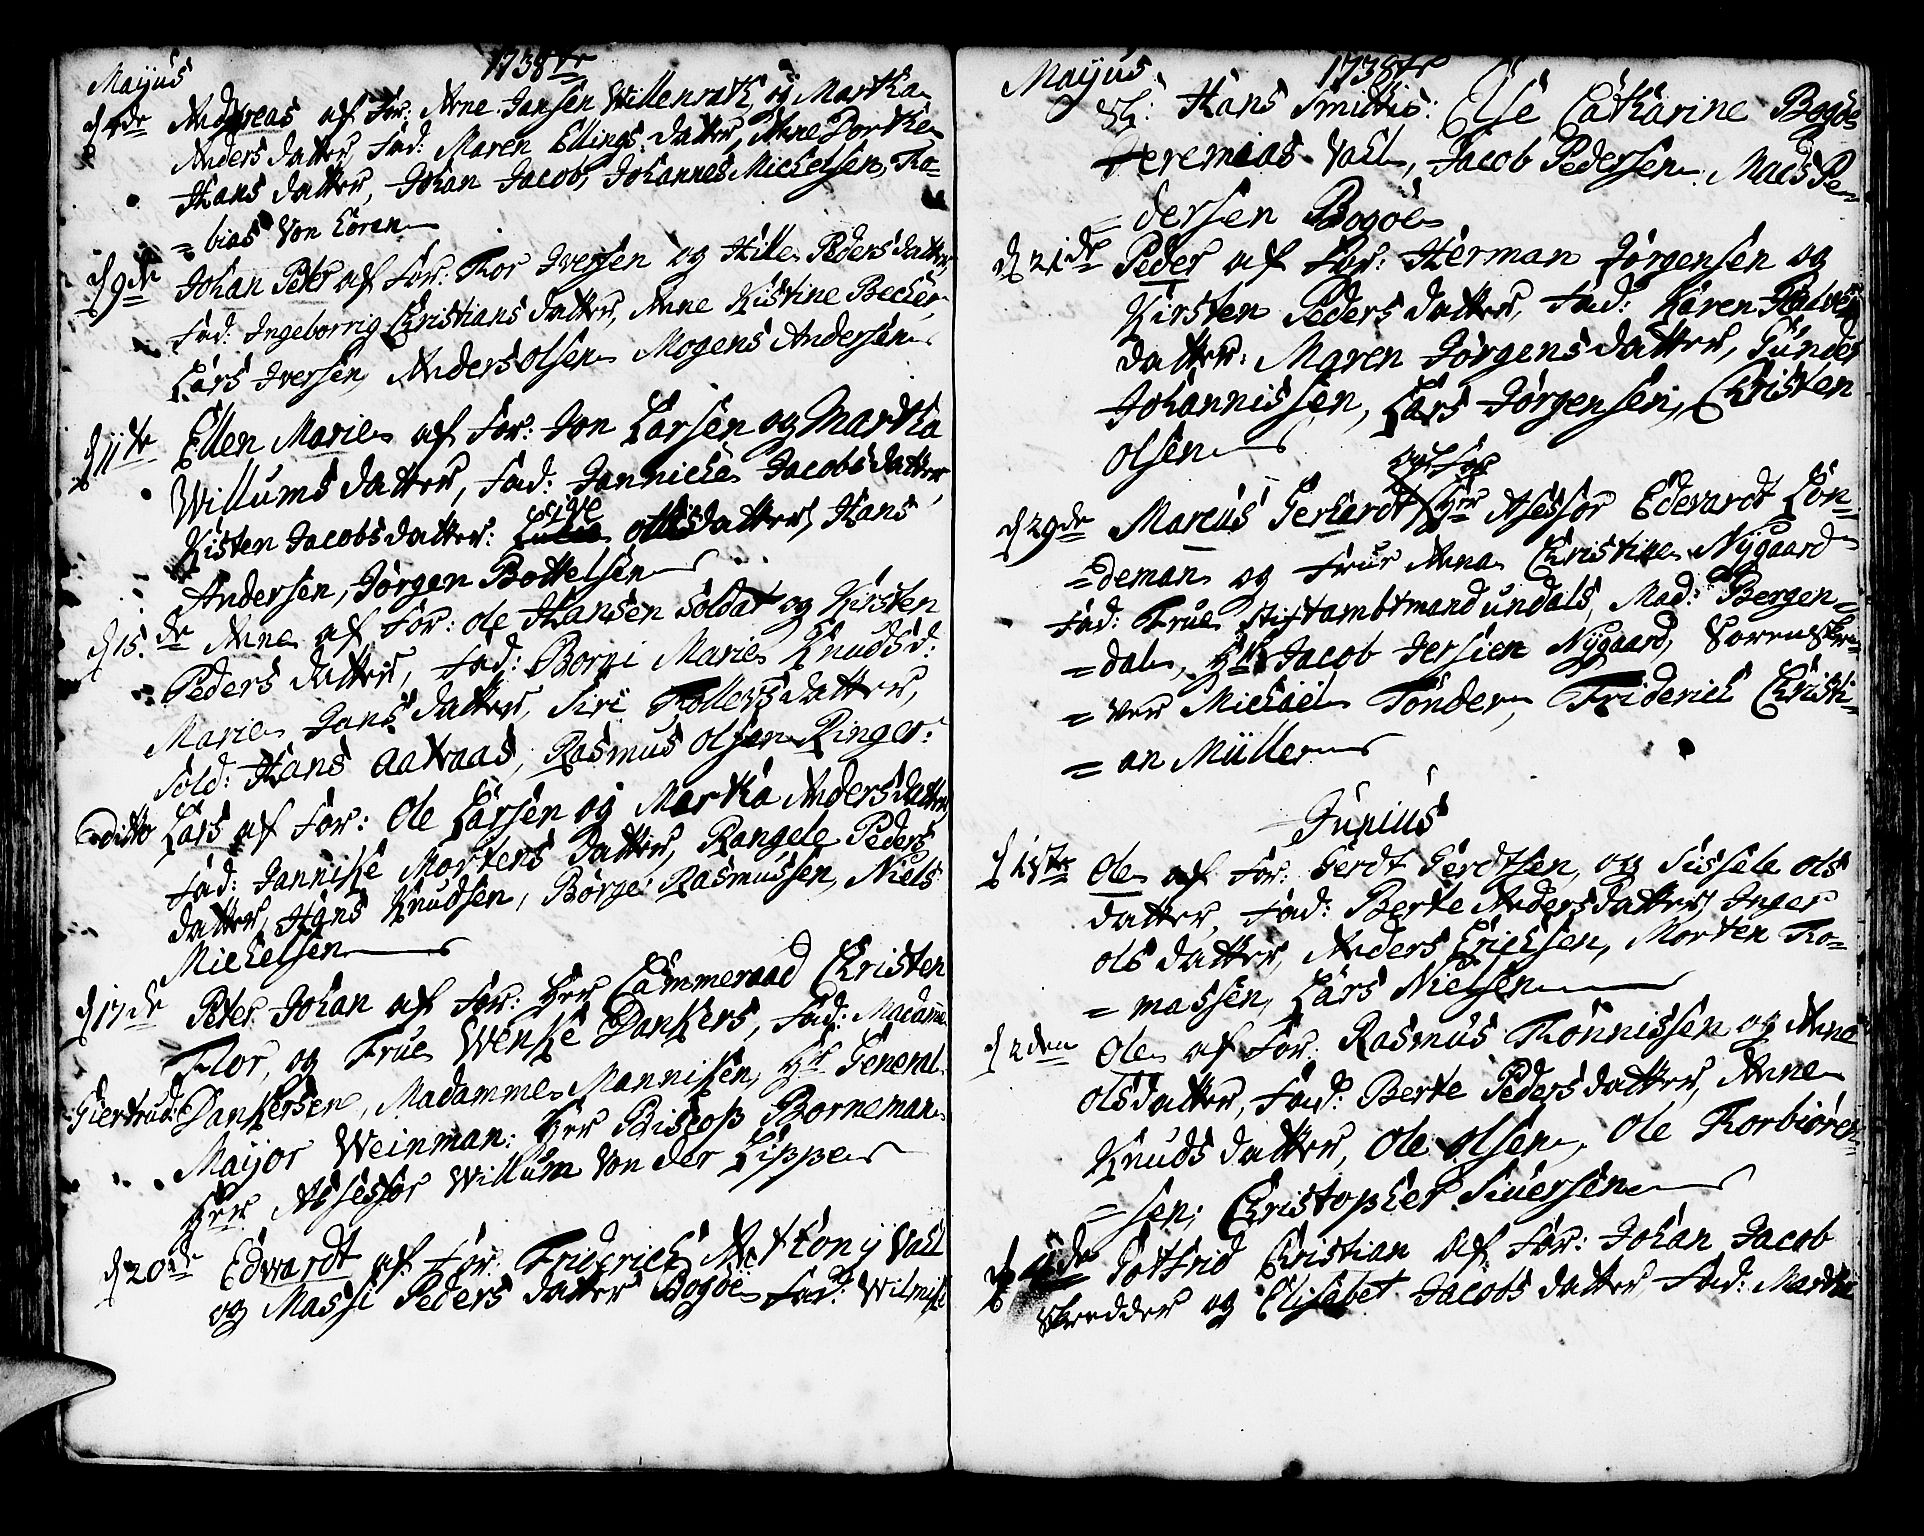 Maijus 1738te
d 4de Andreas af For: Arne Jansen Willenrath og Martha
Anders datter, Fad: Maren Ellings datter, Anne Dorthe
Hans datter, Johan Jacob, Johannes Michelsen, To=
=bias Von Loren
d 9de Johan Peter af For: Tor Iversen og Hille Peders datter
Fad: Ingeborrig Christians datter, Anne Kistine Becher
Lars Iversen, Anders Olsen Mogens Andersen
d 11te Ellen Marie af For: Jon Larsen og Martha
Willums datter, Fad: Jannicke Jacobs datter
Kisten Jacobsdatter: Sive Ottisdatter, Hans
Andersen, Jørgen Bottelsen
d 15.de Anne af For: Ole Hansen Soldat og Kirsten
Peders datter, Fad: Borgi Marie Knudsd:
Marie Jans datter, Siri Tollersdatter,
Sold: Hans Aatraas, Rasmus Olsen Ringer:
ditto Lars af For: Ole Larsen og Martha Anders datter
Fad: Jannike Mortens datter, Rangele Peders
datter, Hans Knudsen, Børge Rasmussen, Niels
Michelsen
d 17de Peter Johan af For: Her Cammeraad Christen
Flor, og Frue Wenke Dankers, Fad: Madame
Giertrud: Dankersen, Madamme Manniken, Hr General
Maijor Weinman: Her Biscop Borneman
Her Assessor Willum Von der Lippe
d 20de Edwardt af For: Friderich Anthonij Vahl
og Massi Peders datter Bogøe Fad:
Maijus 1738te
Sl: Hans Smidtis: Else Catharine Bogøe
Jeremias Vahl, Jacob Pedersen. Mads Pe=
=dersen Bogøe
d 21de Peder af For: Herman Jørgensen og
Kirsten Peders datter, Fad: Karen
datter: Maren Jørgensdatter, Gunder
Johannissen, Lars Jørgensen, Christen
Olsen
af For
d 29de Marcus Gerhardt Hr Assessor Edevardt Lon=
=deman og Frue Anna Christine Nygaard
Fad: Frue Stiftambtmand Undals, Mad: Bergen=
=dal, Hr Jacob Jersien Nygaard, Sorenskri=
=ver Michael Tønder, Friderich Christi=
=an Müller
Junius
d 1ste Ole af For: Gerdt Gerdtsen, og Sissele Ols
datter, Fad: Berte Andersdatter, Inger
Ols datter, Anders Erichsen, Morten To=
=massen, Lars Nielsen
d 2den Ole af For: Rasmus Tønnissen og Anne
Olsdatter, Fad: Berte Peders datter, Anne
Knuds datter, Ole Olsen, Ole Torbiøren=
=sen, Christopher Siversen
Gotfrid Christian af For: Johan Jacob
Skredder og Elisabet Jacobs datter, Fad: Martha